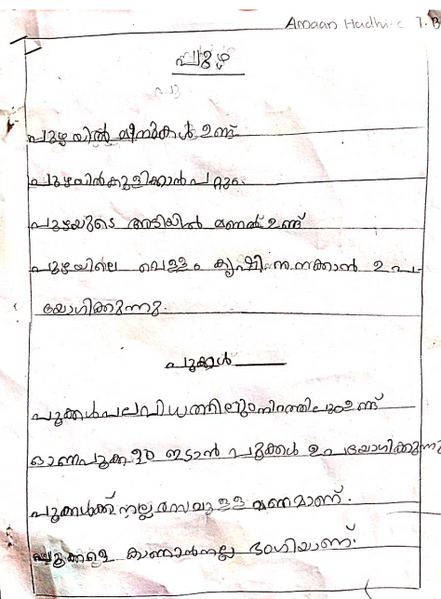 Amaan Hadhi-c 7.B
പുഴ
പു
പുഴയിൽ മീനുകൾ ഉണ്ട്
പുഴയിൽകുളിക്കാൻ പറ്റും.
പുഴയുടെ അടിയിൽ മണൽ ഉണ്ട്
പുഴയിലെ വെള്ളം കൃഷി നനക്കാൻ ഉപ-
യോഗിക്കുന്നു.
പൂക്കൾ
പൂക്കൾപലവിധത്തിലുംനിറത്തിലുംഉണ്ട്
ഓണപൂക്കളം ഇടാൻ പൂക്കൾ ഉപയോഗിക്കുന്നു
പൂക്കൾക്ക് നല്ല രസമുള്ള മണമാണ്.
പൂക്കളെ കാണാൻനല്ല ഭംഗിയാണ്.